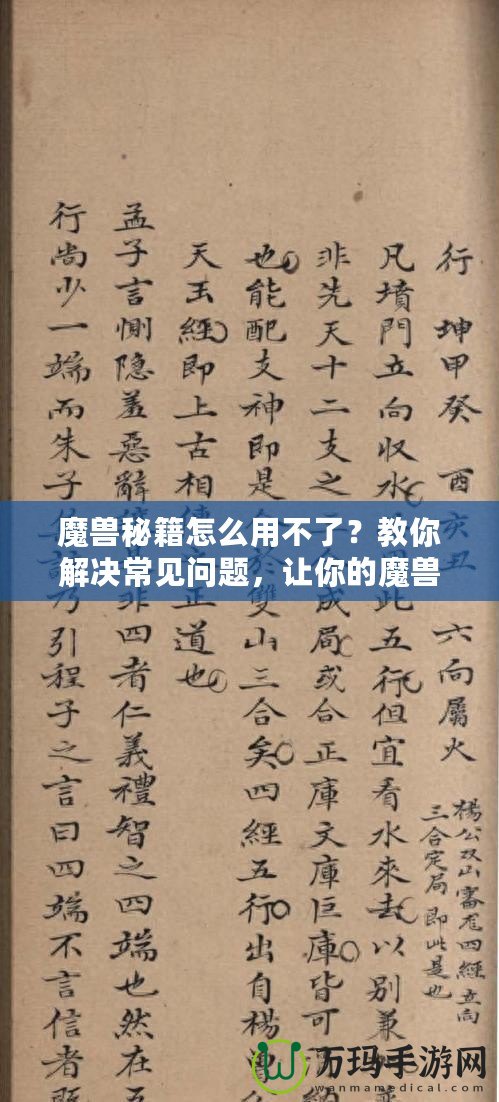 行 坤甲癸 酉亥丑 六向屬火
楊公双山審龙四經立向
三合定局即此是也
凡墳門立向收水此五行但宜看水來去以別兼
非先天十二支之成局或合正庫文庫巨庫皆可
也能配支神即是於雙山三合矣四經五行出自楊曾
天玉經即上古相正道也
孟子言惻隐羞惡辭非四者仁義禮智之四端也然在五
行尚少一端而朱子乃引程子之言曰四端不言信者既
魔兽秘籍怎么用不了？教你
解决常见问题，让你的魔兽
万玛手游网
wanmamedical.com